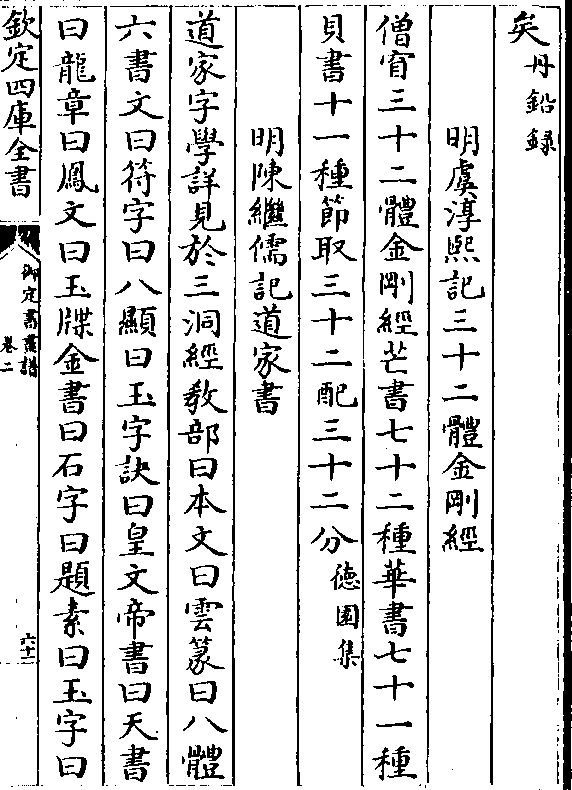 矣丹鉛録
明虞淳熙記三十二體金剛經
僧宵三十二體金剛經芒書七十二種華書七十一種
貝書十一種節取三十二配三十二分德園集
明陳繼儒記道家書
道家字學詳見於三洞經教部曰本文曰雲篆曰八體
六書文曰符字曰八顯曰玉字訣曰皇文帝書曰天書
曰龍章曰鳳文曰玉牒金書曰石字曰題素曰玉字曰
欽定四庫全書
御定書畫譜
卷二
六十二